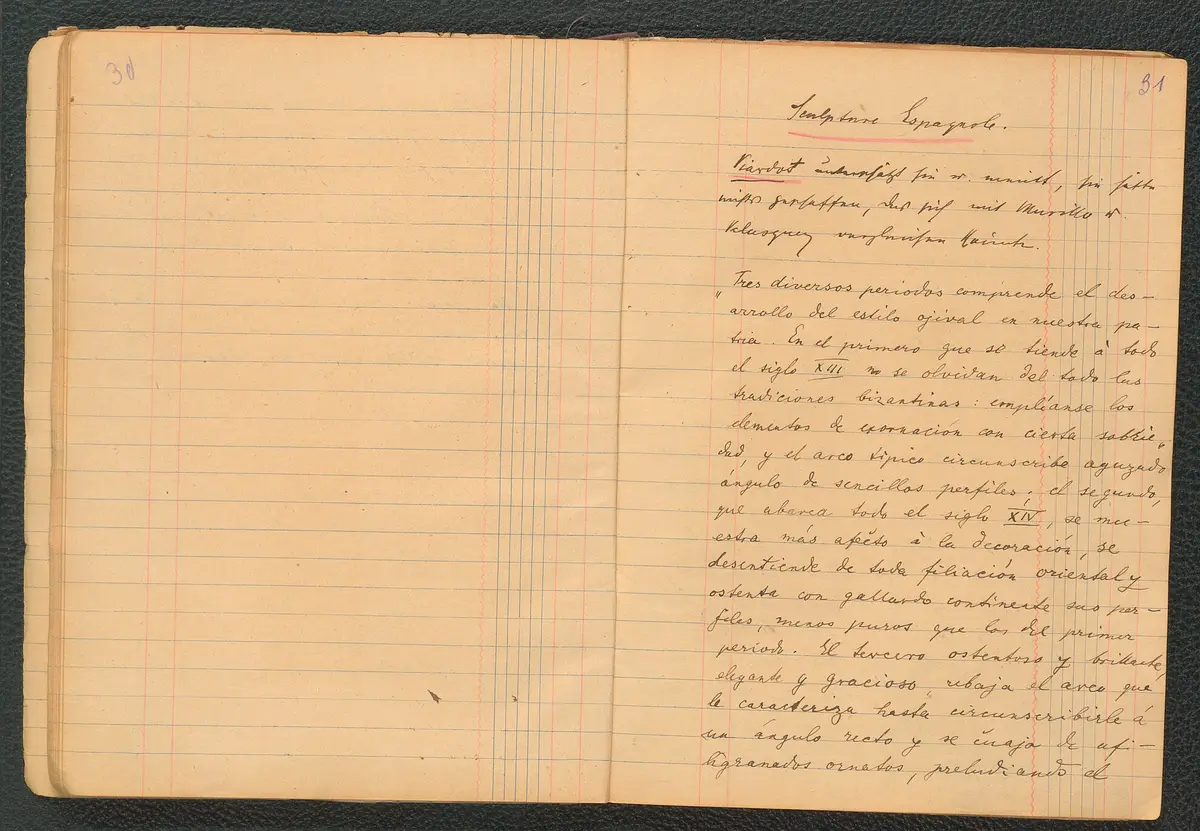 30
31
Sculpture Espagnole.
Viardot unterschätzt sie u. meint, sie hätte
nichts geschaffen, das sich mit Murillo u.
Velasquez vergleichen könnte.
„Tres diversos periodos comprende el des-
arrollo del estilo ojival en nuestra pa-
tria. En el primero que se tiende à todo
el siglo XIII no se olvidan del todo las
tradiciones bizantinas: empléanse los
elementos de exornación con cierta sobrie„
dad, y el arco típico circunscribe aguzado
ángulo de sencillos perfiles; el segundo,
que abarca todo el siglo XIV, se mue-
estra más afecto à la decoración, se
desentiende de toda filiación oriental y
ostenta con gallardo continente sus per-
files, menos puros que los del primer
periodo. El tercero ostentoso y brillante,
elegante y gracioso rebaja el arco que
le caracteriza hasta circunscribirle á
un ángulo recto y se cuaja de afi-
ligranados ornatos, preludiando el